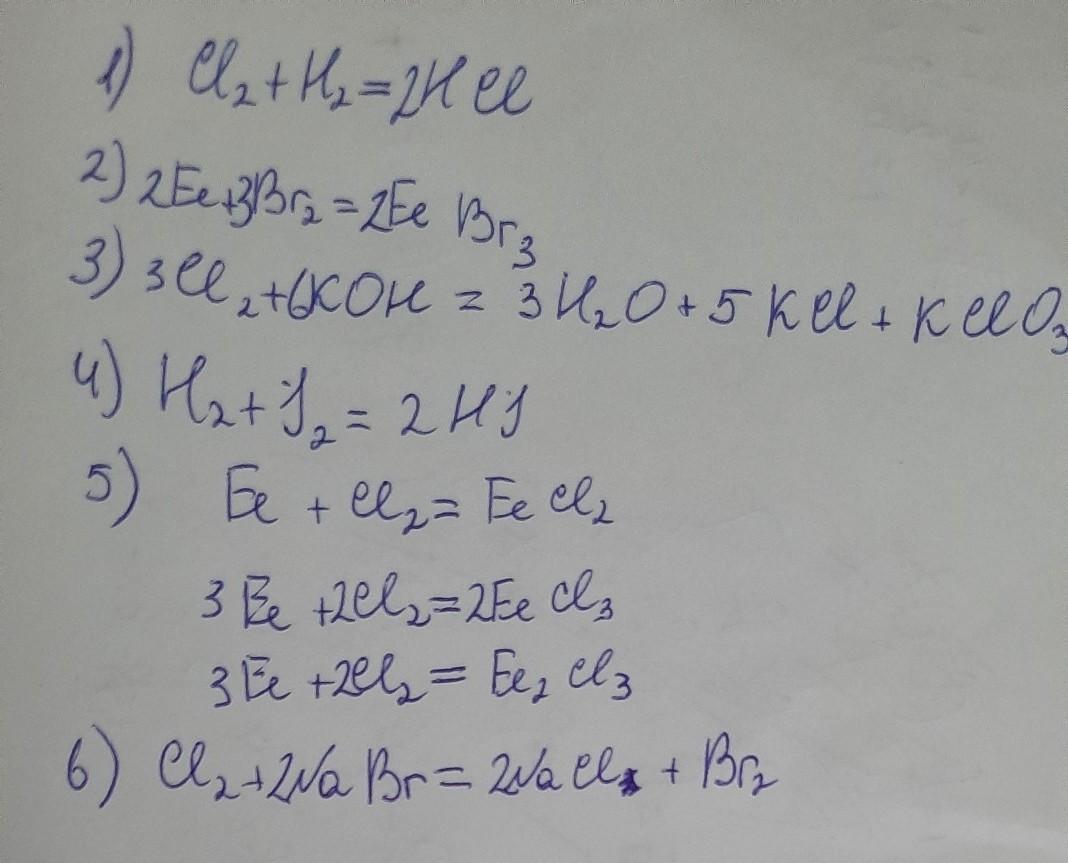 1) Cl₂+H₂=2HCl
2) 2Fe+3Br₂=2Fe Br₃
3) 3Cl₂+6KOH = 3H₂O+5KCl+KClO₃
4) H₂+J₂=2HJ
5) Fe + Cl₂= FeCl₂
3Fe +2Cl₂=2FeCl₃
3Fe +2Cl₂= Fe₂Cl₃
6) Cl₂+2NaBr=2NaCl + Br₂